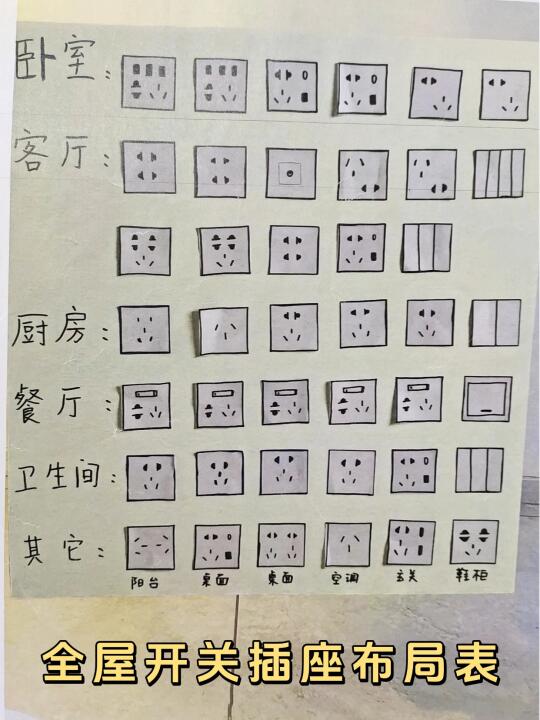 卧室：
客厅：
厨房：
餐厅：
卫生间：
其它：
阳台 桌面 桌面 空调 玄关 鞋柜
全屋开关插座布局表